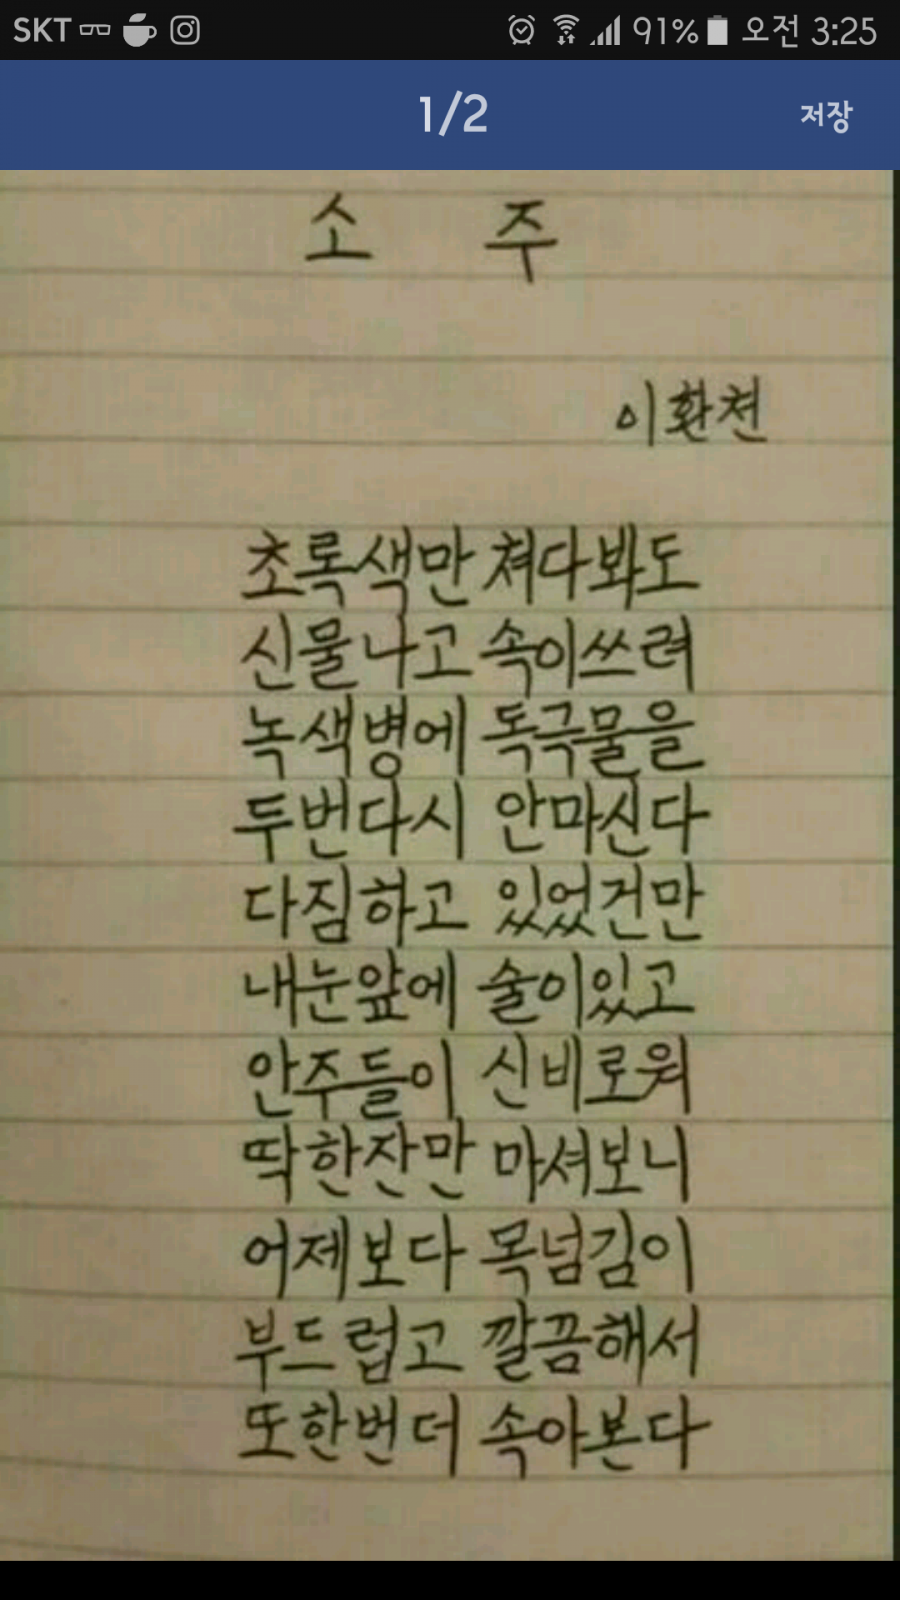 SKT 91% 오전 3:25
1/2 저장
소 주
이환천
초록색만 쳐다봐도
신물나고 속이쓰려
녹색병에 독극물을
두번다시 안마신다
다짐하고 있었건만
내눈앞에 술이있고
안주들이 신비로워
딱한잔만 마셔보니
어제보다 목넘김이
부드럽고 깔끔해서
또한번더 속아본다